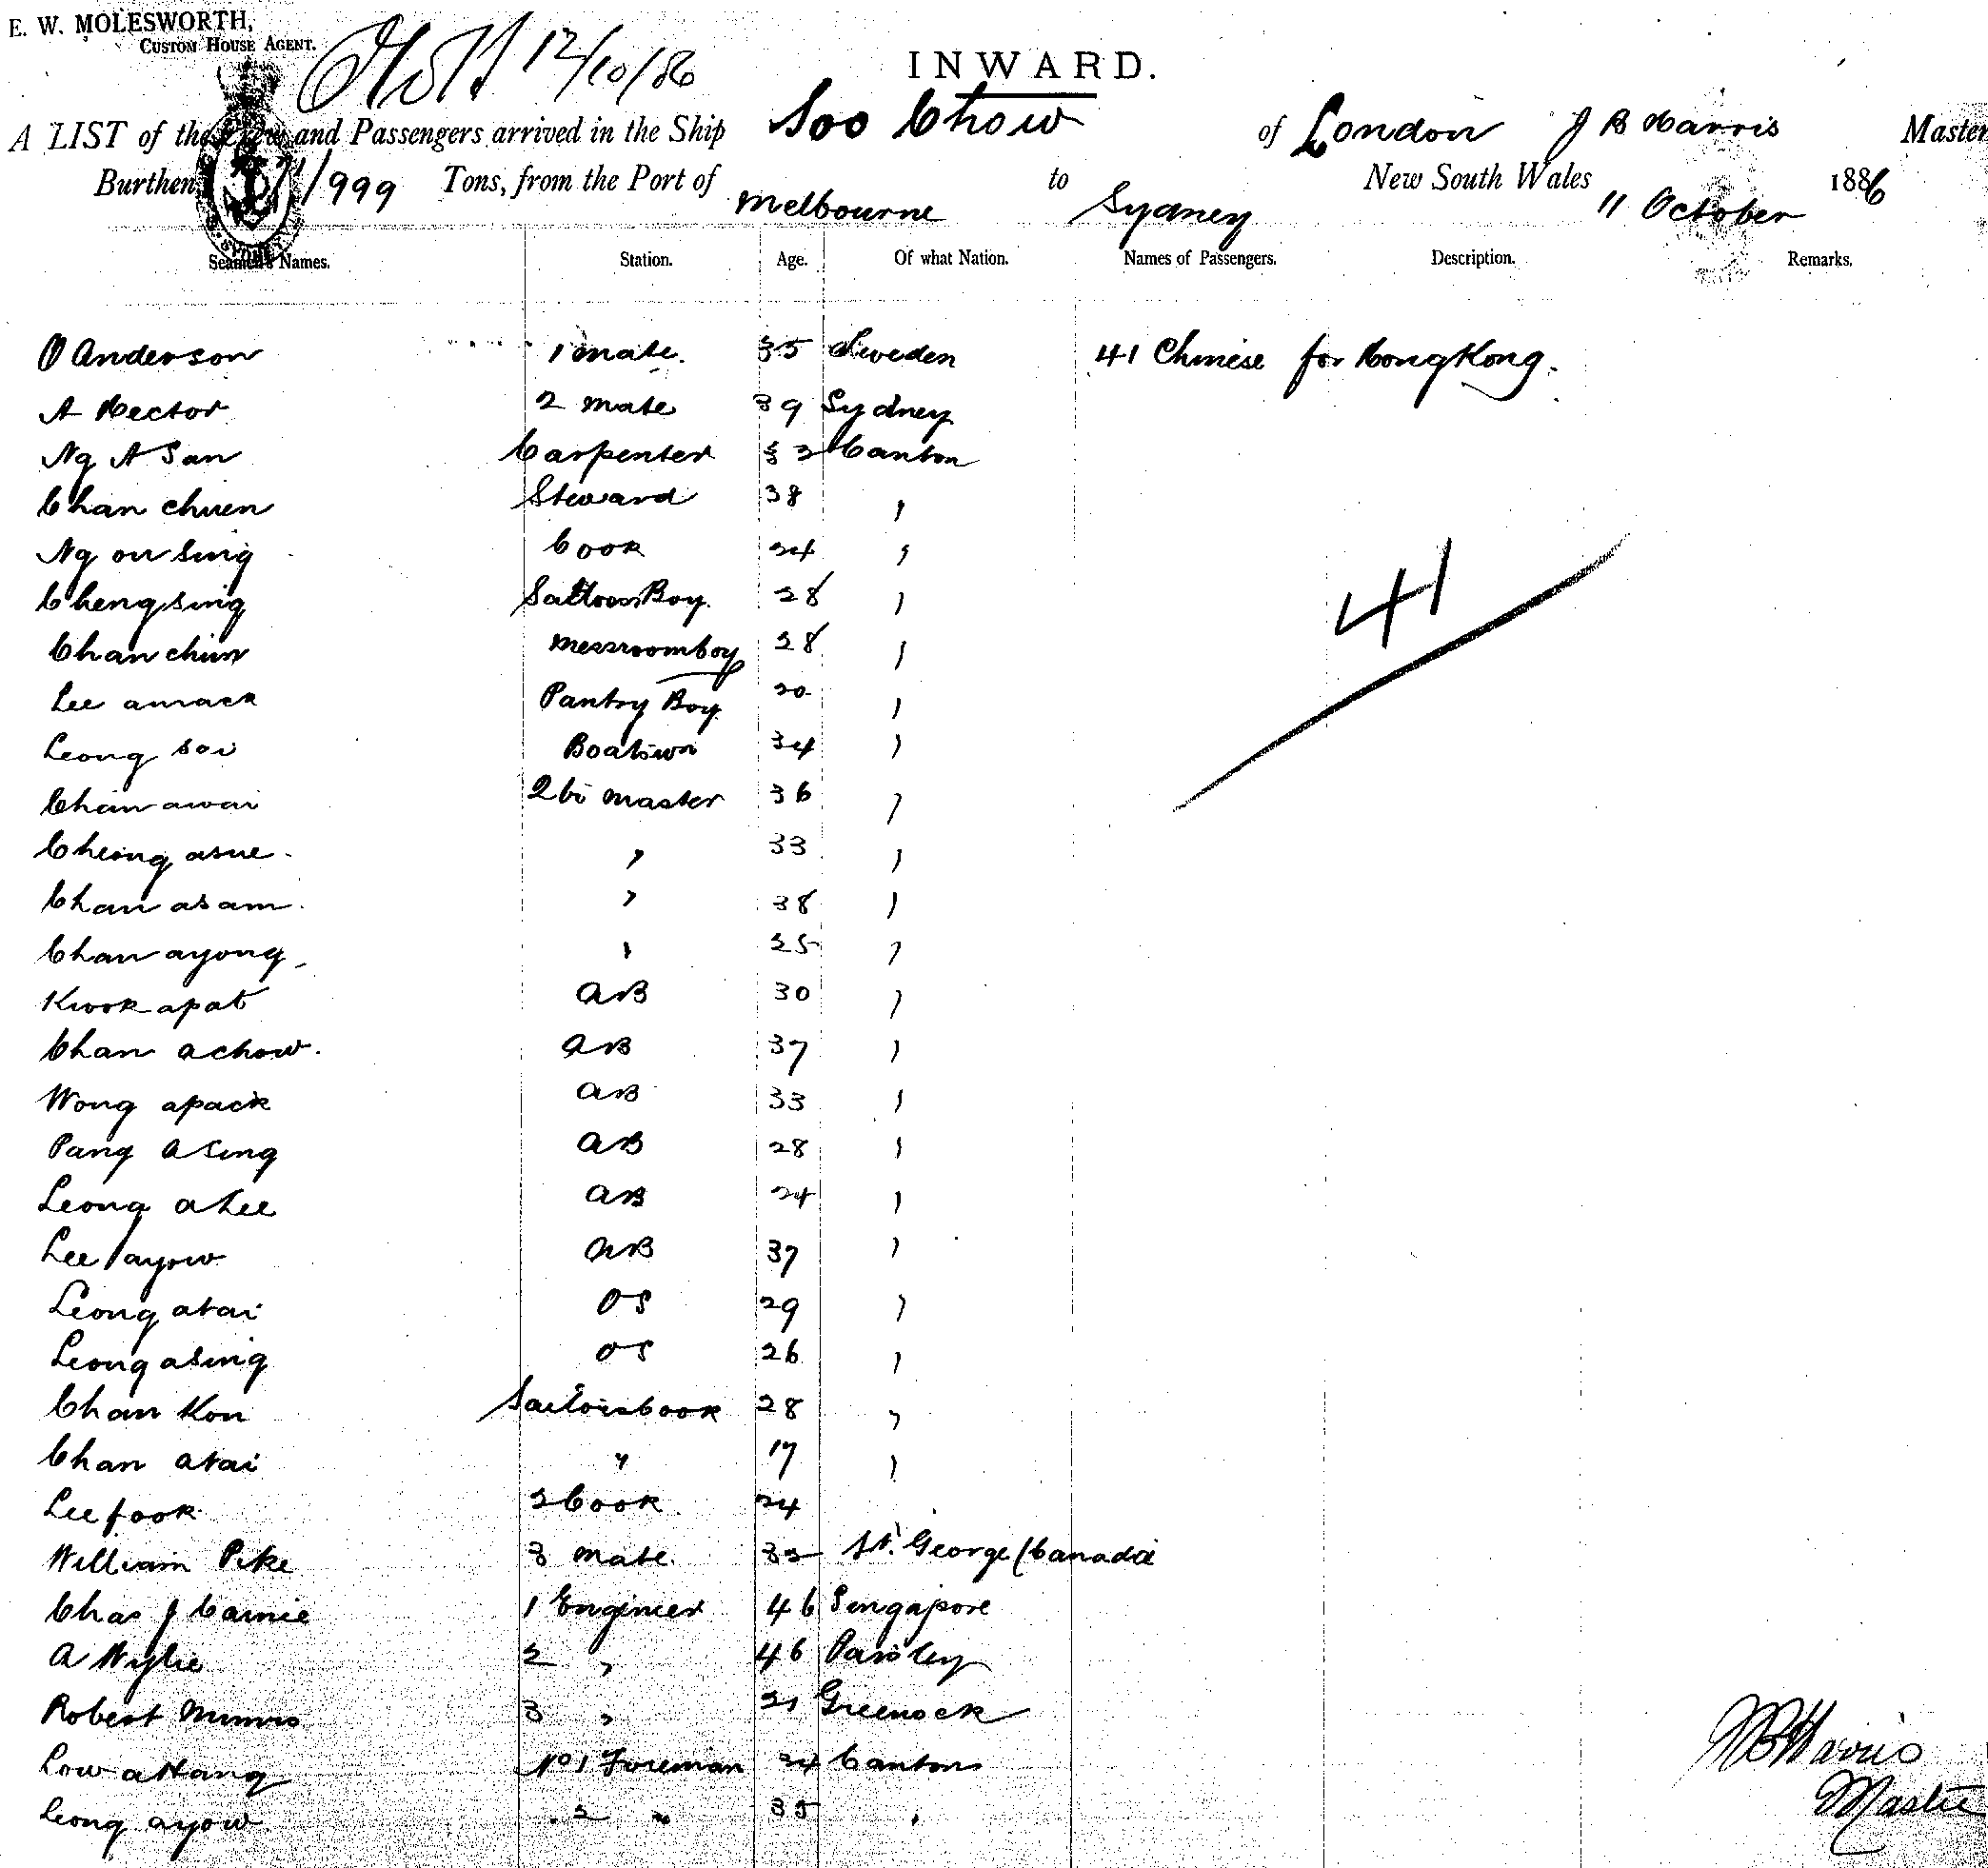 E. W. MOLESWORTH,
CUSTOM HOUSE AGENT.
12/10/86
INWARD.
A LIST of the Crew and Passengers arrived in the Ship Soo Chow of London J B Harris Master
Burthen 999 Tons, from the Port of Melbourne to Sydney New South Wales 11 October 1886
Seamen's Names. Station. Age. Of what Nation. Names of Passengers. Description. Remarks.
O Anderson 1 mate. 35 Sweden 41 Chinese for HongKong.
A Hector 2 mate 39 Sydney
Ng A San Carpenter 33 Canton
Chan chuen Steward 38 "
Ng on sing Cook 24 "
Cheng sing Saloon Boy. 28 "
41
Chan chun messroomboy 28 "
Lee amack Pantry Boy 20 "
Leong soi Boatswn 34 "
Chan awai Qtr master 36 "
Cheong asue " 33 "
Chan asam " 38 "
Chan ayong " 25 "
Kwok apat AB 30 "
Chan achow. AB 37 "
Wong apack AB 33 "
Pang asing AB 28 "
Leong alee AB 24 "
Lee ayow AB 37 "
Leong atai OS 29 "
Leong asing OS 26 "
Chan Kon Sailorscook 28 "
Chan atai " 17 "
Lee fook 2 Cook 24
William Pike 3 mate. 32 St. George (Canada
Chas J Carnie 1 Engineer 46 Singapore
A Wylie 2 " 46 Paisley
Robert Munro 3 " 21 Greenock
Low aHang No 1 Foreman 34 Canton
Leong ayow 2 " 35 "
JB Harris
Master